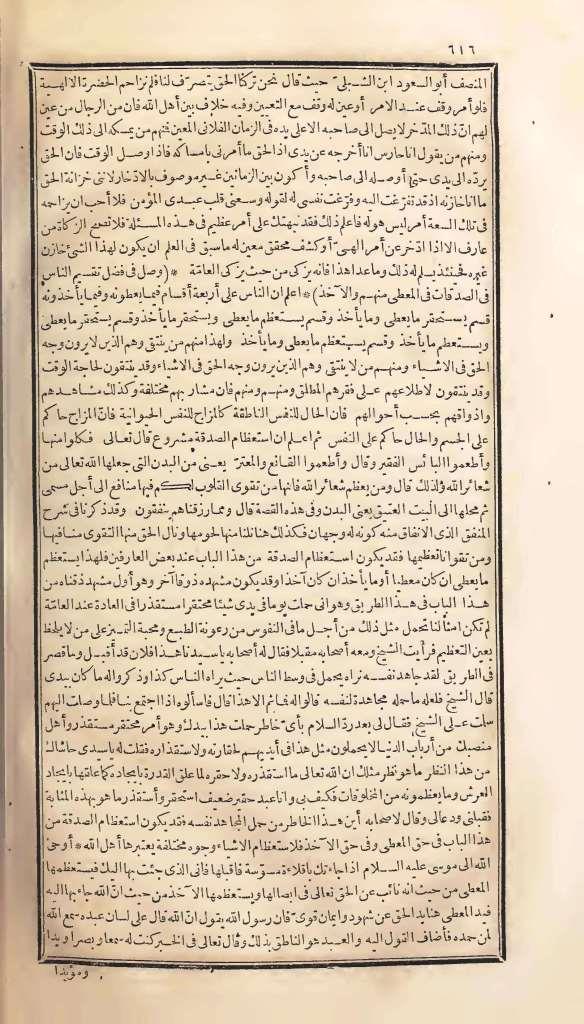 ٦١٦
المنصف أبو السعود ابن الشبلي حيث قال نحن تركنا الحق يتصرف لنا فلم نزاحم الحضرة الالهية
فلو أمر وقف عند الامر أو عين له وقف مع التعيين وفيه خلاف بين أهل الله فان من الرجال من عين
لهم ان ذلك المدّخر لا يصل الى صاحبه الا على يده فى الزمان الفلانى المعين فنهم من يمسكه الى ذلك الوقت
ومنهم من يقول انا حارس انا أخرجه عن يدى اذ الحق ما أمرنى بامساكه فاذا وصل الوقت فان الحق
يردّه الى يدى حتى أوصله الى صاحبه وأكون بين الزمانين غير موصوف بالادّخار لانى خزانة الحق
ما انا خازنه اذ قد تفرّغت اليه وفرّغت نفسى له لقوله وسعنى قلب عبدى المؤمن فلا أحب ان يزاحمه
فى تلك السعة أمر ليس هو له فاعلم ذلك فقد نبهتك على أمر عظيم فى هذه المسئلة فلا تصح الزكاة من
عارف الا اذا ادّخر عن أمر الهىّ أو كشف محقق معين له ما سبق فى العلم ان يكون لهذا الشئ خازن
غيره فحينئذ يسلم له ذلك وما عدا هذا فانه يزكى من حيث يزكى العامّة *(وصل فى فضل تقسيم الناس
فى الصدقات فى المعطى منهم والآخذ)* اعلم ان الناس على أربعة أقسام فيما يعطونه وفيما يأخذونه
قسم يستحقر ما يعطى وما يأخذ وقسم يستعظم ما يعطى ويستحقر ما يأخذ وقسم يستحقر ما يعطى
ويستعظم ما يأخذ وقسم يستعظم ما يعطى وما يأخذ ولهذا منهم من ينتقى وهم الذين لا يرون وجه
الحق فى الاشياء ومنهم من لا ينتقى وهم الذين يرون وجه الحق فى الاشياء وقد ينتقون لحاجة الوقت
وقد ينتقون لاطلاعهم على فقرهم المطلق ومنهم ومنهم فان مشاربهم مختلفة وكذلك مشاهدهم
واذواقهم بحسب أحوالهم فان الحال للنفس الناطقة كالمزاج للنفس الحيوانية فان المزاج حاكم
على الجسم والحال حاكم على النفس ثم اعلم ان استعظام الصدقة مشروع قال تعالى فكلوا منها
وأطعموا البائس الفقير وقال وأطعموا القانع والمعتر يعنى من البدن التى جعلها الله تعالى من
شعائر الله ولذلك قال ومن يعظم شعائر الله فانها من تقوى القلوب لكم فيها منافع الى أجل مسمى
ثم محلها الى البيت العتيق يعنى البدن وفى هذه القصة قال ومما رزقناهم ينفقون وقد ذكرنا فى شرح
المنفق الذى الانفاق منه كونه له وجهان فكذلك هنا نلنا منها لحومها ونال الحق منها التقوى منا فيها
ومن تقوانا تعظيمها فقد يكون استعظام الصدقة من هذا الباب عند بعض العارفين فلهذا يستعظم
ما يعطى ان كان معطيا أو ما يأخذ ان كان آخذا وقد يكون مشهده ذوقا آخر وهو أول مشهد ذقناه من
هذا الباب فى هذا الطريق وهو انى حملت يوما فى يدى شيئا محتقرا مستقذرا فى العادة عند العامّة
لم تكن امثالنا تحمل مثل ذلك من أجل ما فى النفوس من رعونة الطبع ومحبة التميز على من لا يلحظ
بعين التعظيم فرأيت الشيخ ومعه أصحابه مقبلا فقال له أصحابه يا سيدنا هذا فلان قد أقبل وما قصر
فى الطريق لقد جاهد نفسه نراه يحمل فى وسط الناس حيث يراه الناس كذا وذكروا له ما كان بيدى
قال الشيخ فلعله ما حمله مجاهدة لنفسه قالوا له فما ثم الا هذا قال فاسألوه اذا اجتمع بنا فلما وصلت اليهم
سلمت على الشيخ فقال لى بعد ردّ السلام بأىّ خاطر حملت هذا بيدك وهو أمر محتقر مستقذر وأهل
منصبك من أرباب الدنيا لا يحملون مثل هذا فى أيديهم لحقارته ولاستقذاره فقلت له يا سيدى حاشاك
من هذا النظر ما هو نظر مثلك ان الله تعالى ما استقذره ولا حقره لما علق القدرة بايجاده كما علقها بايجاد
العرش وما يعظمونه من المخلوقات فكيف بى وانا عبد حقير ضعيف استحقر وأستقذر ما هو بهذه المثابة
فقبلنى ودعا لى وقال لاصحابه أين هذا الخاطر من حمل المجاهد نفسه فقد يكون استعظام الصدقة من
هذا الباب فى حق المعطى وفى حق الآخذ فلاستعظام الاشياء وجوه مختلفة يعتبرها أهل الله * أوحى
الله الى موسى عليه السلام اذا جاءتك باقلاءة مسوّسة فاقبلها فانى الذى جئت بها اليك فيستعظمها
المعطى من حيث انه نائب عن الحق تعالى فى ايصالها ويستعظمها الآخذ من حيث انّ الله جاء بها اليه
فيد المعطى هنا يد الحق عن شهود وايمان قوى فان رسول الله يقول انّ الله قال على لسان عبده سمع الله
لمن حمده فأضاف القول اليه والعبد هو الناطق بذلك وقال تعالى فى الخبر كنت له سمعا وبصرا ويدا
ومؤيدا